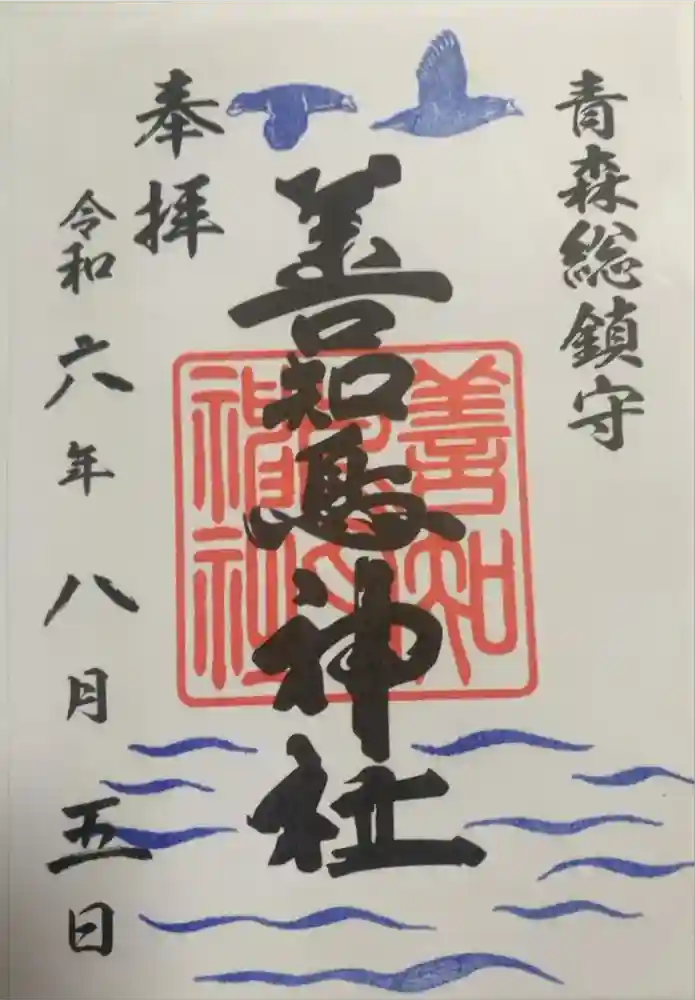 青森総鎮守
善知鳥神社
善知鳥神社
奉拝
令和六年八月五日